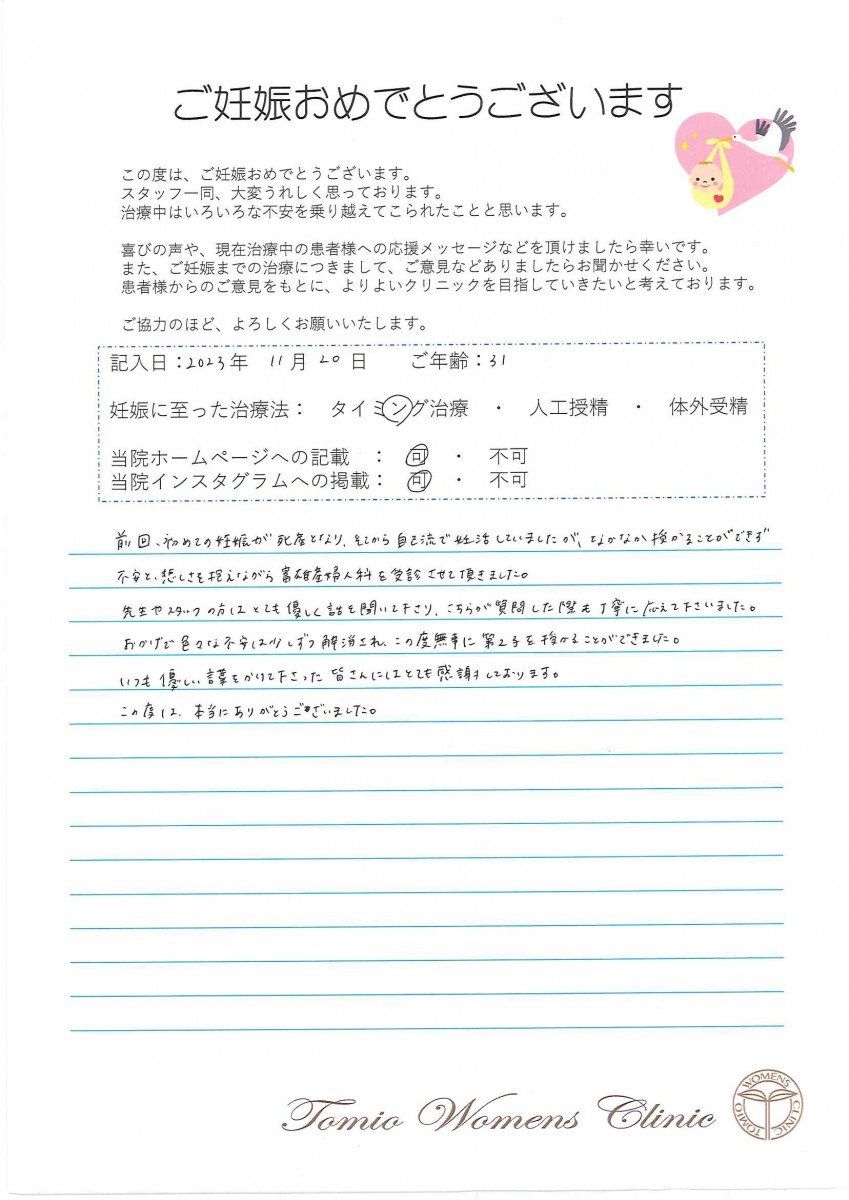 ご妊娠おめでとうございます
この度は、ご妊娠おめでとうございます。
スタッフ一同、大変うれしく思っております。
治療中はいろいろな不安を乗り越えてこられたことと思います。
喜びの声や、現在治療中の患者様への応援メッセージなどを頂けましたら幸いです。
また、ご妊娠までの治療につきまして、ご意見などありましたらお聞かせください。
患者様からのご意見をもとに、よりよいクリニックを目指していきたいと考えております。
ご協力のほど、よろしくお願いいたします。
記入日：2023年 11月 20日 ご年齢：31
妊娠に至った治療法： タイミング治療 ・ 人工授精 ・ 体外受精
当院ホームページへの記載 ： 可 ・ 不可
当院インスタグラムへの掲載： 可 ・ 不可
前回、初めての妊娠が死産となり、そこから自己流で妊活していましたが、なかなか授かることができず
不安と、悲しさを抱えながら富雄産婦人科を受診させて頂きました。
先生やスタッフの方はとても優しく話を聞いて下さり、こちらが質問した際も丁寧に応えて下さいました。
おかげで色々な不安は少しずつ解消され、この度無事に第2子を授かることができました。
いつも優しい言葉をかけて下さった皆さんにはとても感謝しております。
この度は、本当にありがとうございました。
Tomio Womens Clinic
TOMIO WOMENS CLINIC